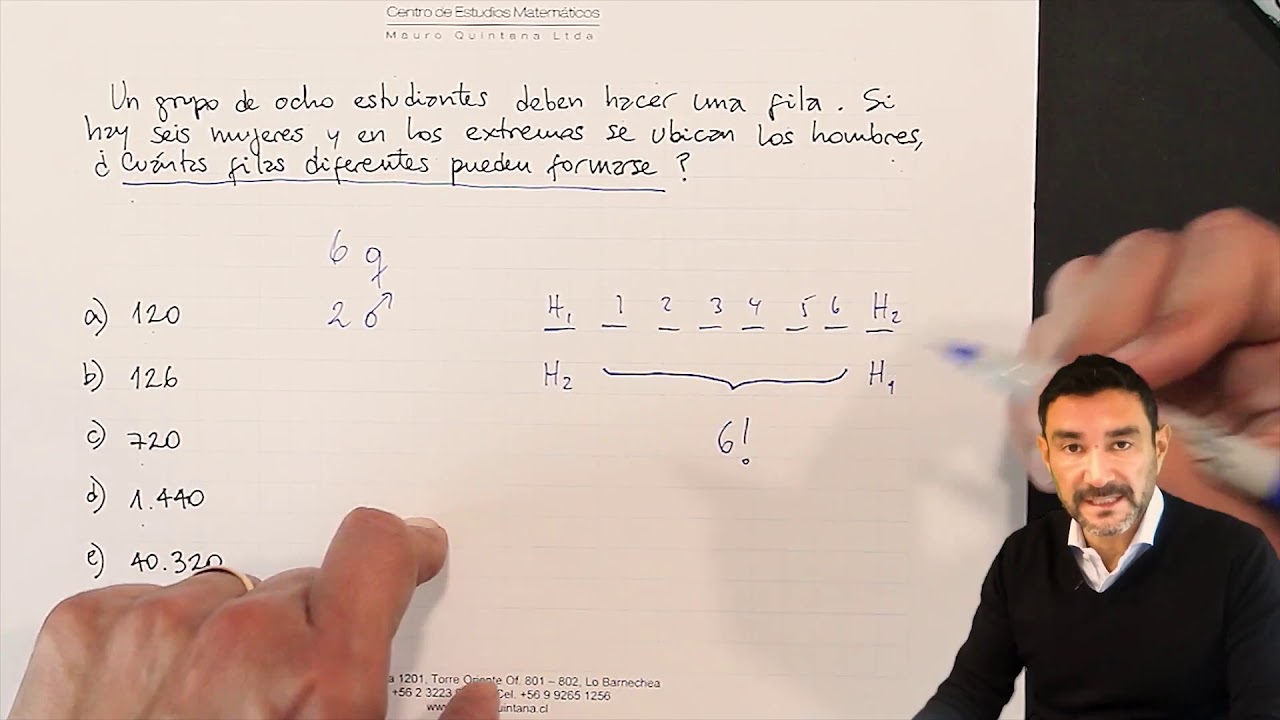 Centro de Estudios Matemáticos
Mauro Quintana Ltda
Un grupo de ocho estudiantes deben hacer una fila. Si
hay seis mujeres y en los extremas se ubican los hombres,
¿Cuántas filas diferentes pueden formarse?
6 ♀
2 ♂
a) 120
b) 126
c) 720
d) 1.440
e) 40.320
H₁ 1 2 3 4 5 6 H₂
H₂ H₁
6!
a 1201, Torre Oriente Of. 801 – 802, Lo Barnechea
+56 2 3223 Cel. +56 9 9265 1256
www. uintana.cl